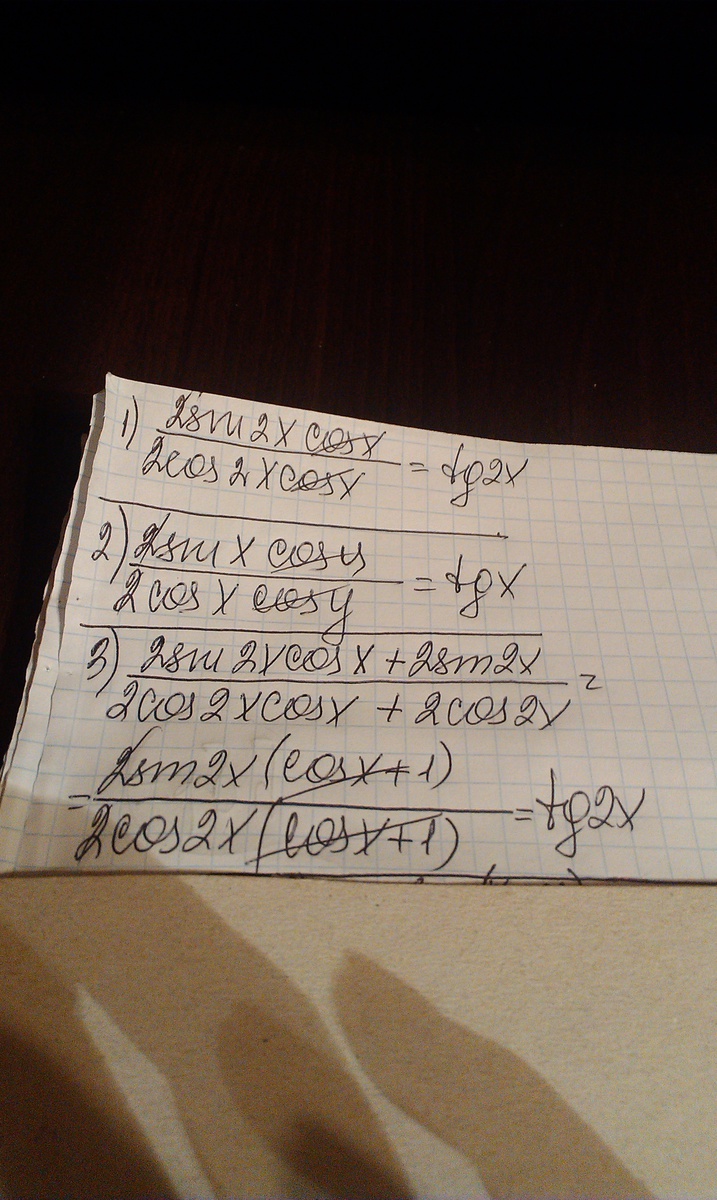 1) 2sin2x cosx / 2cos2x cosx = tg2x
2) 2sinx cosy / 2cosx cosy = tgx
3) 2sin2x cosx + 2sin2x / 2cos2x cosx + 2cos2x =
= 2sin2x (cosx+1) / 2cos2x (cosx+1) = tg2x